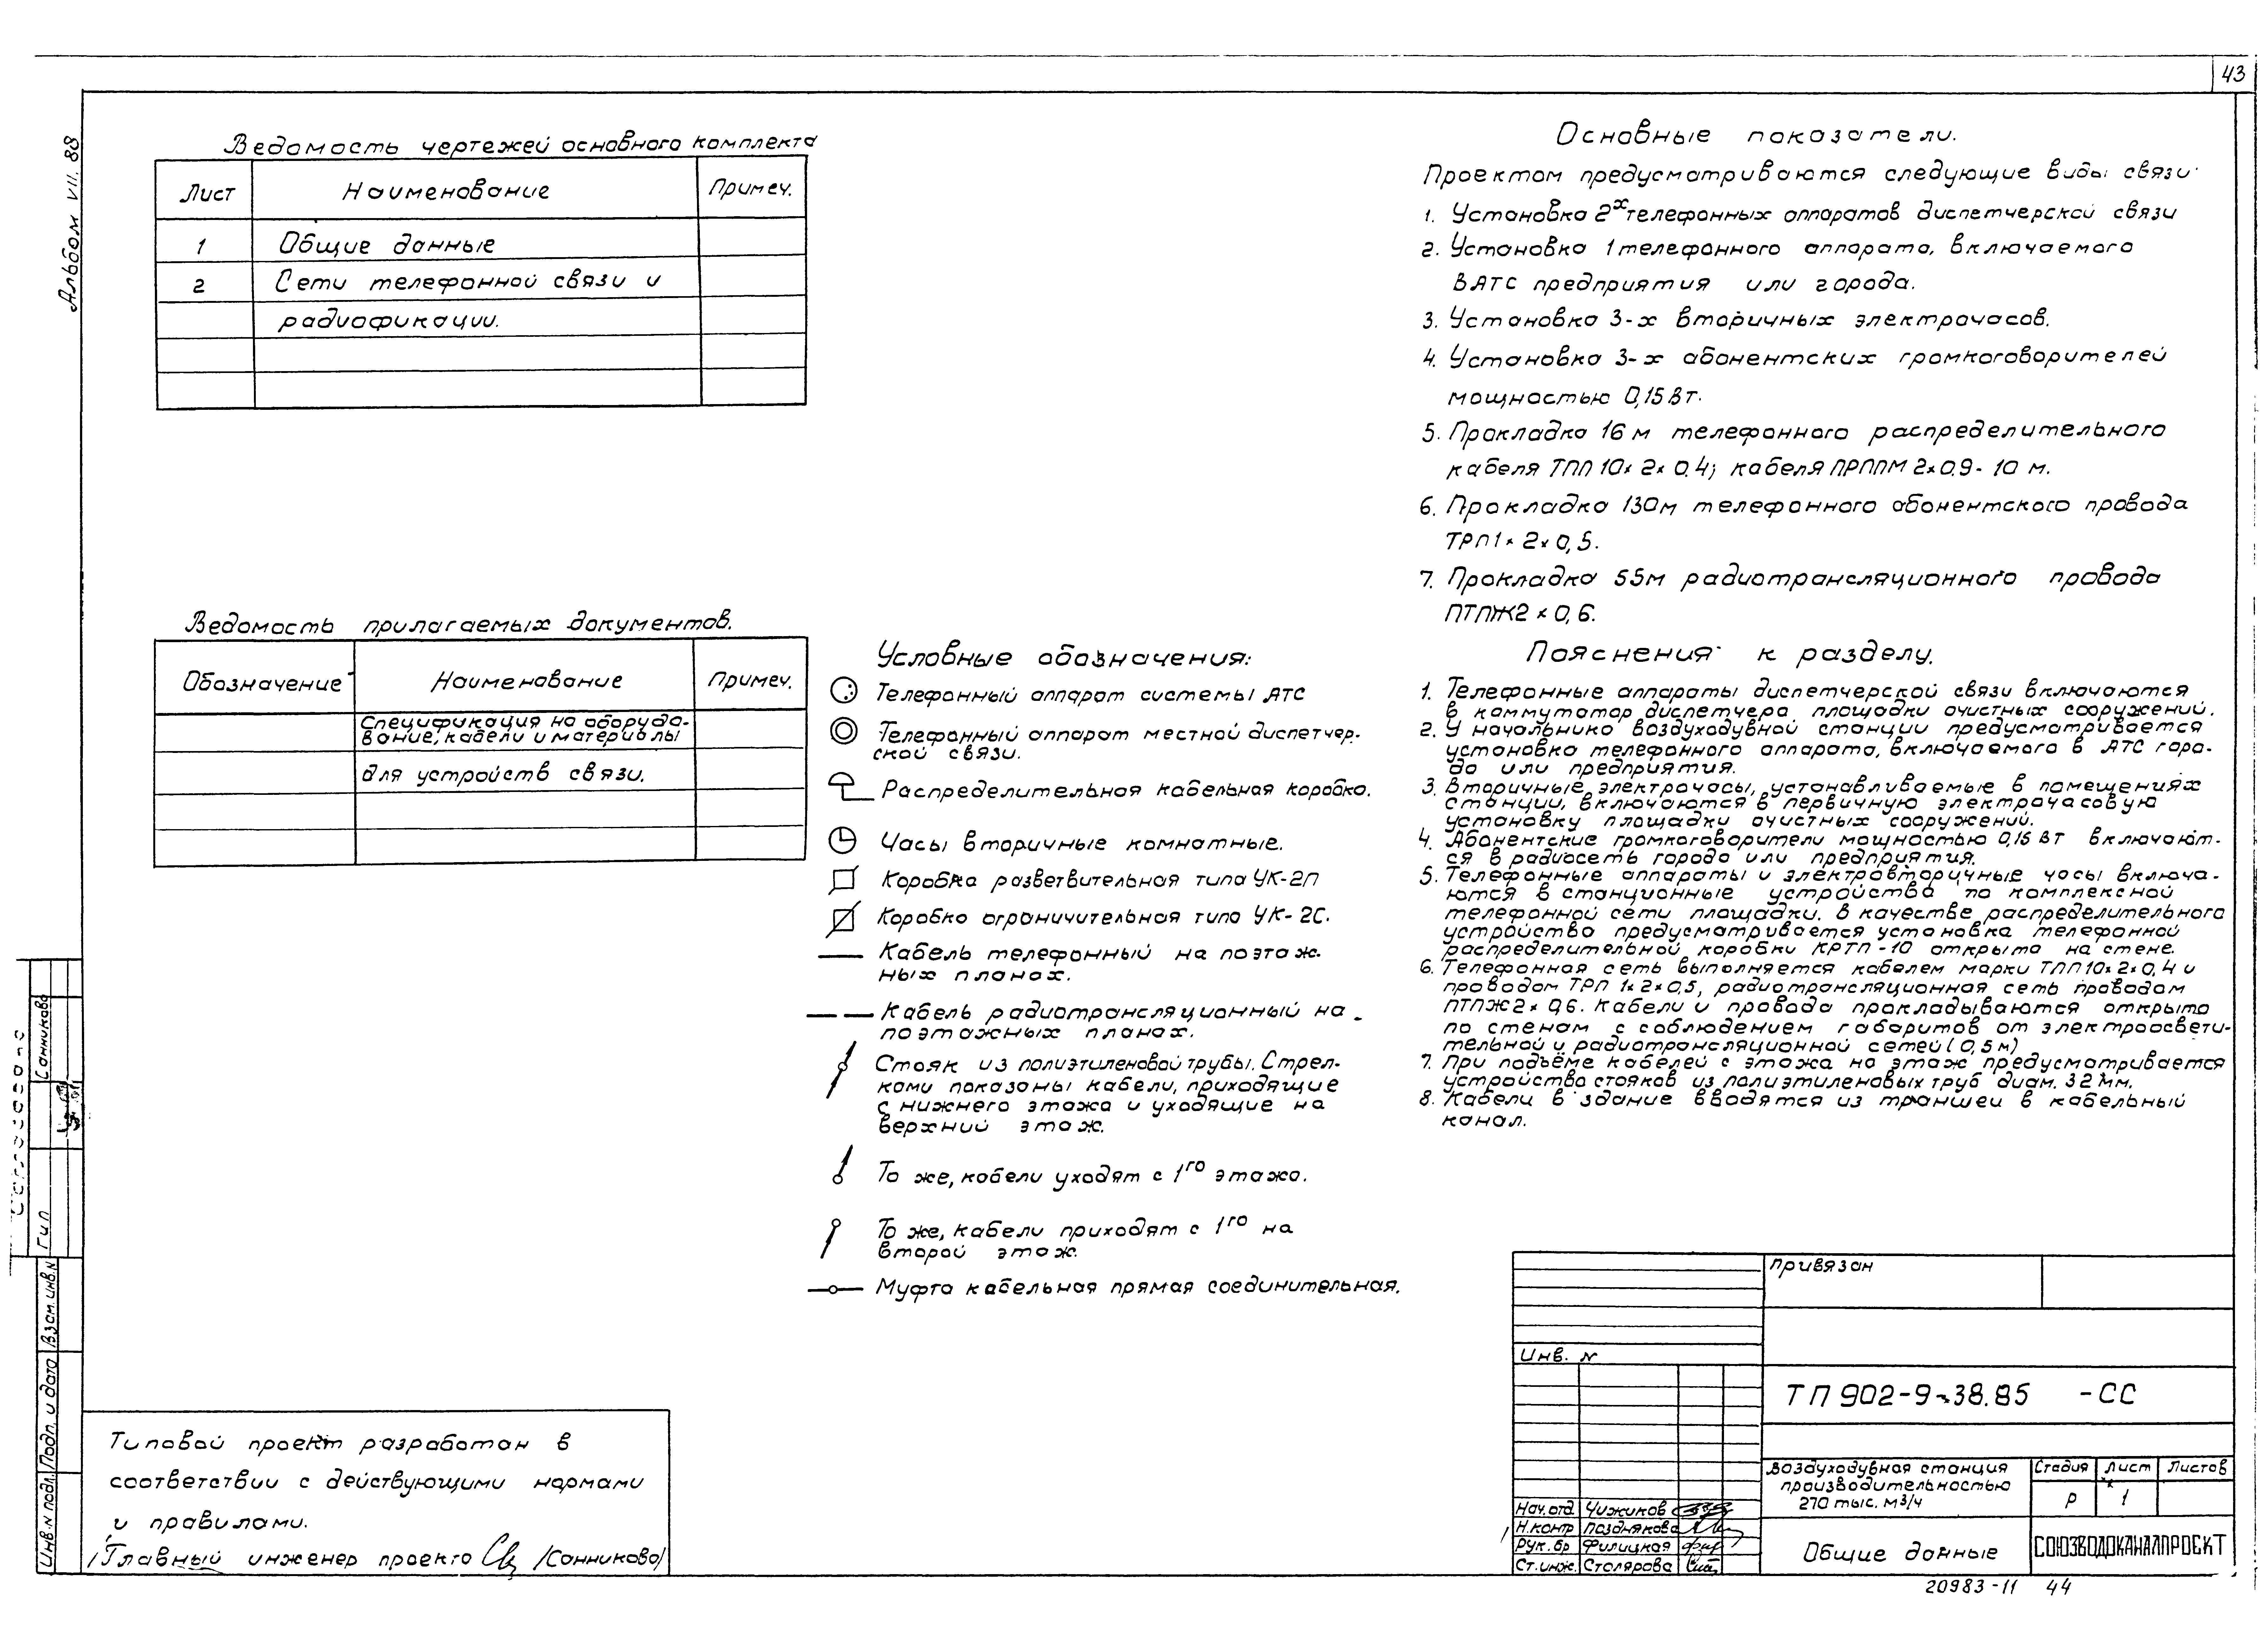 43
Альбом VII. 88
Ведомость чертежей основного комплекта
Лист Наименование Примеч.
1 Общие данные
2 Сети телефонной связи и
радиофикации.
Ведомость прилагаемых документов.
Обозначение Наименование Примеч.
Спецификация на оборудо-
вание, кабели и материалы
для устройств связи.
Условные обозначения:
Телефонный аппарат системы АТС
Телефонный аппарат местной диспетчер-
ской связи.
Распределительная кабельная коробка.
Часы вторичные комнатные.
Коробка разветвительная типа УК-2П
Коробка ограничительная типа УК-2С.
Кабель телефонный на поэтаж-
ных планах.
Кабель радиотрансляционный на
поэтажных планах.
Стояк из полиэтиленовой трубы. Стрел-
ками показаны кабели, приходящие
с нижнего этажа и уходящие на
верхний этаж.
То же, кабели уходят с 1го этажа.
То же, кабели приходят с 1го на
второй этаж.
Муфта кабельная прямая соединительная.
Основные показатели.
Проектом предусматриваются следующие виды связи
1. Установка 2х телефонных аппаратов диспетчерской связи
2. Установка 1 телефонного аппарата, включаемого
в АТС предприятия или города.
3. Установка 3-х вторичных электрочасов.
4. Установка 3-х абонентских громкоговорителей
мощностью 0,15 Вт.
5. Прокладка 16 м телефонного распределительного
кабеля ТПП 10х2х0.4; кабеля ПРППМ 2х0.9 - 10 м.
6. Прокладка 130м телефонного абонентского провода
ТРП 1х2х0,5.
7. Прокладка 55м радиотрансляционного провода
ПТПЖ 2х0,6.
Пояснения к разделу.
1. Телефонные аппараты диспетчерской связи включаются
в коммутатор диспетчера площадки очистных сооружений.
2. У начальника воздуходувной станции предусматривается
установка телефонного аппарата, включаемого в АТС горо-
да или предприятия.
3. Вторичные электрочасы, устанавливаемые в помещениях
станции, включаются в первичную электрочасовую
установку площадки очистных сооружений.
4. Абонентские громкоговорители мощностью 0,15 Вт включают-
ся в радиосеть города или предприятия.
5. Телефонные аппараты и электровторичные часы включа-
ются в станционные устройства по комплексной
телефонной сети площадки. В качестве распределительного
устройства предусматривается установка телефонной
распределительной коробки КРТП-10 открыто на стене.
6. Телефонная сеть выполняется кабелем марки ТПП 10х2х0,4 и
проводом ТРП 1х2х0,5, радиотрансляционная сеть проводом
ПТПЖ 2х0,6. Кабели и провода прокладываются открыто
по стенам с соблюдением габаритов от электроосвети-
тельной и радиотрансляционной сетей (0,5м)
7. При подъёме кабелей с этажа на этаж предусматривается
устройство стояков из полиэтиленовых труб диам. 32 мм.
8. Кабели в здание вводятся из траншеи в кабельный
канал.
Согласовано
ГИП Санникова
Взам. инв. N
Подп. и дата
Инв. N подл.
Типовой проект разработан в
соответствии с действующими нормами
и правилами.
Главный инженер проекта /Санникова/
Привязан
Инв. N
ТП 902-9-38.85 -СС
Воздуходувная станция
производительностью
270 тыс. м3/ч
Стадия Лист Листов
Р 1
Нач. отд. Чижиков
Н. контр Позднякова
Рук. бр Филицкая
Ст. инж. Столярова
Общие данные
СОЮЗВОДОКАНАЛПРОЕКТ
20983-11 44